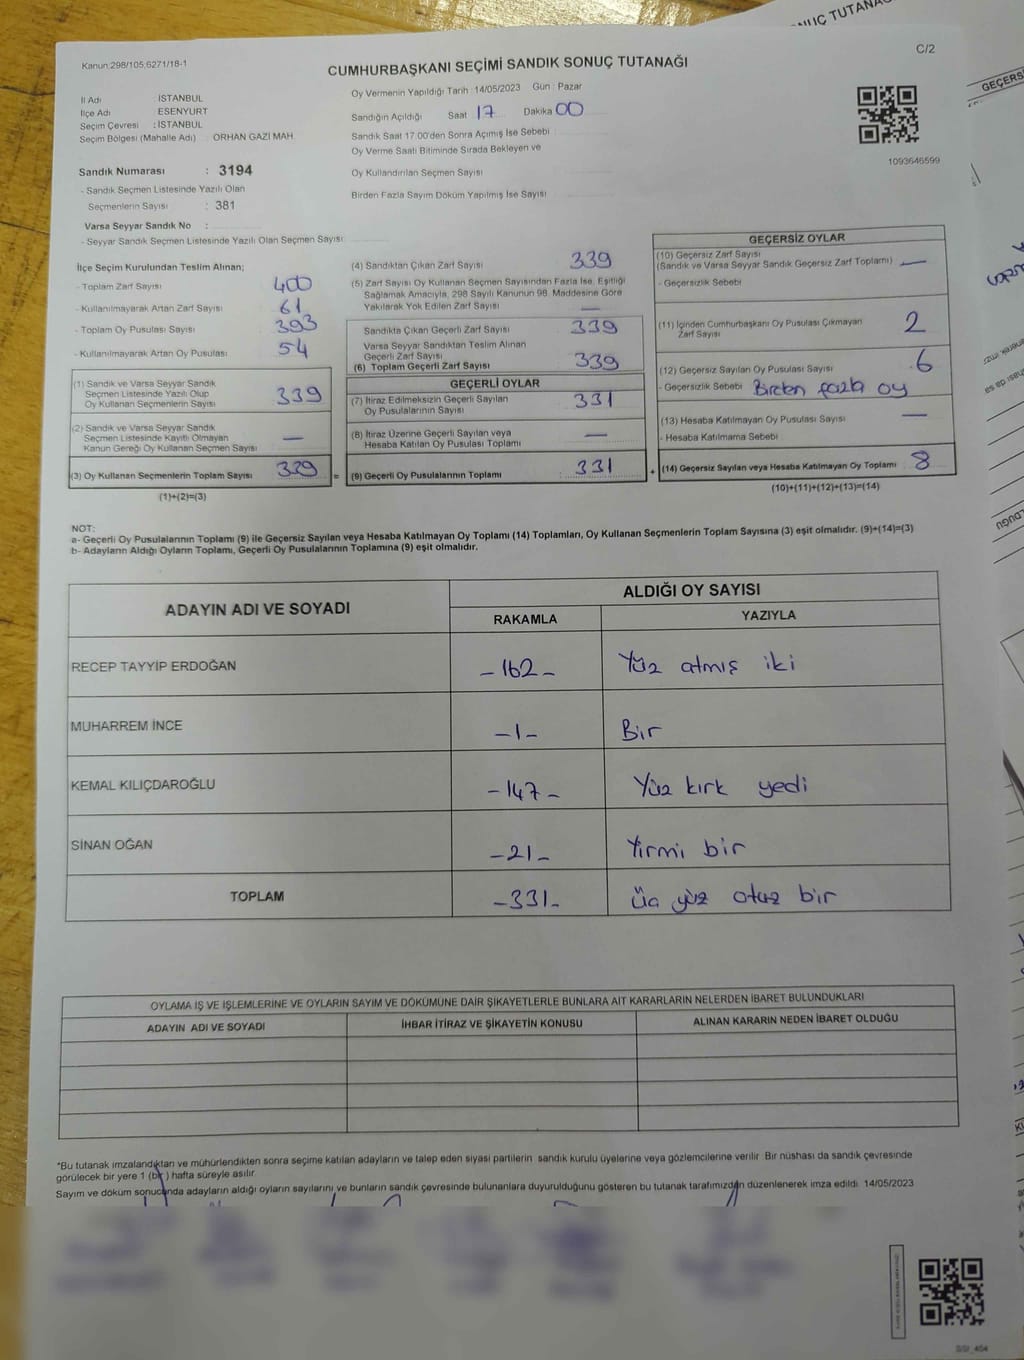 NUÇ TUTANA
C/2
Kanun:298/105,6271/18-1
CUMHURBAŞKANI SEÇİMİ SANDIK SONUÇ TUTANAĞI
İl Adı : İSTANBUL
İlçe Adı : ESENYURT
Seçim Çevresi : İSTANBUL
Seçim Bölgesi (Mahalle Adı) ORHAN GAZİ MAH
Oy Vermenin Yapıldığı Tarih :14/05/2023 Gün : Pazar
Sandığın Açıldığı Saat 17 Dakika 00
Sandık Saat 17:00'den Sonra Açımış İse Sebebi
Oy Verme Saati Bitiminde Sırada Bekleyen ve
Oy Kullandırılan Seçmen Sayısı
Birden Fazla Sayım Döküm Yapılmış İse Sayısı
1093646599
Sandık Numarası : 3194
- Sandık Seçmen Listesinde Yazılı Olan
Seçmenlerin Sayısı : 381
Varsa Seyyar Sandık No :
- Seyyar Sandık Seçmen Listesinde Yazılı Olan Seçmen Sayısı:
İlçe Seçim Kurulundan Teslim Alınan;
- Toplam Zarf Sayısı 400
- Kullanılmayarak Artan Zarf Sayısı 61
- Toplam Oy Pusulası Sayısı 393
- Kullanılmayarak Artan Oy Pusulası 54
(1) Sandık ve Varsa Seyyar Sandık
Seçmen Listesinde Yazılı Olup
Oy Kullanan Seçmenlerin Sayısı 339
(2) Sandık ve Varsa Seyyar Sandık
Seçmen Listesinde Kayıtlı Olmayan
Kanun Gereği Oy Kullanan Seçmen Sayısı —
(3) Oy Kullanan Seçmenlerin Toplam Sayısı 339 =
(1)+(2)=(3)
(4) Sandıktan Çıkan Zarf Sayısı 339
(5) Zarf Sayısı Oy Kullanan Seçmen Sayısından Fazla İse, Eşitliği
Sağlamak Amacıyla, 298 Sayılı Kanunun 98. Maddesine Göre
Yakılarak Yok Edilen Zarf Sayısı —
Sandıkta Çıkan Geçerli Zarf Sayısı 339
Varsa Seyyar Sandıktan Teslim Alınan
Geçerli Zarf Sayısı
(6) Toplam Geçerli Zarf Sayısı 339
GEÇERLİ OYLAR
(7) İtiraz Edilmeksizin Geçerli Sayılan
Oy Pusulalarının Sayısı 331
(8) İtiraz Üzerine Geçerli Sayılan veya
Hesaba Katılan Oy Pusulası Toplamı —
(9) Geçerli Oy Pusulalarının Toplamı : 331 +
GEÇERSİZ OYLAR
(10) Geçersiz Zarf Sayısı
(Sandık ve Varsa Seyyar Sandık Geçersiz Zarf Toplamı) —
- Geçersizlik Sebebi
(11) İçinden Cumhurbaşkanı Oy Pusulası Çıkmayan
Zarf Sayısı 2
(12) Geçersiz Sayılan Oy Pusulası Sayısı 6
- Geçersizlik Sebebi Birden fazla oy
(13) Hesaba Katılmayan Oy Pusulası Sayısı —
- Hesaba Katılmama Sebebi
(14) Geçersiz Sayılan veya Hesaba Katılmayan Oy Toplamı 8
(10)+(11)+(12)+(13)=(14)
NOT:
a- Geçerli Oy Pusulalarının Toplamı (9) ile Geçersiz Sayılan veya Hesaba Katılmayan Oy Toplamı (14) Toplamları, Oy Kullanan Seçmenlerin Toplam Sayısına (3) eşit olmalıdır. (9)+(14)=(3)
b- Adayların Aldığı Oyların Toplamı, Geçerli Oy Pusulalarının Toplamına (9) eşit olmalıdır.
ADAYIN ADI VE SOYADI ALDIĞI OY SAYISI
RAKAMLA YAZIYLA
RECEP TAYYİP ERDOĞAN -162- Yüz atmış iki
MUHARREM İNCE -1- Bir
KEMAL KILIÇDAROĞLU -147- Yüz kırk yedi
SİNAN OĞAN -21- Yirmi bir
TOPLAM -331- Üç yüz otuz bir
OYLAMA İŞ VE İŞLEMLERİNE VE OYLARIN SAYIM VE DÖKÜMÜNE DAİR ŞİKAYETLERLE BUNLARA AİT KARARLARIN NELERDEN İBARET BULUNDUKLARI
ADAYIN ADI VE SOYADI İHBAR İTİRAZ VE ŞİKAYETİN KONUSU ALINAN KARARIN NEDEN İBARET OLDUĞU
*Bu tutanak imzalandıktan ve mühürlendikten sonra seçime katılan adayların ve talep eden siyasi partilerin sandık kurulu üyelerine veya gözlemcilerine verilir. Bir nüshası da sandık çevresinde
görülecek bir yere 1 (bir) hafta süreyle asılır.
Sayım ve döküm sonucunda adayların aldığı oyların sayılarını ve bunların sandık çevresinde bulunanlara duyurulduğunu gösteren bu tutanak tarafımızdan düzenlenerek imza edildi. 14/05/2023